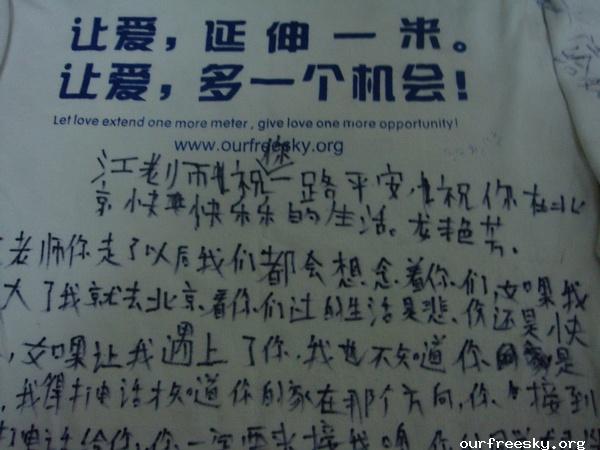 让爱，延伸一米。
让爱，多一个机会！
Let love extend one more meter , give love one more opportunity!
www.ourfreesky.org
江老师祝你一路平安，祝你在北
京快快乐乐的生活。龙艳芳.
老师你走了以后我们都会想念着你们，如果我
大了我就去北京看你们过的生活是悲伤还是快
，如果让我遇上了你，我也不知道你是
，我得打电话才知道你的家在那个方向，你接到
打电话给你，你一定要来接我
ourfreesky.org